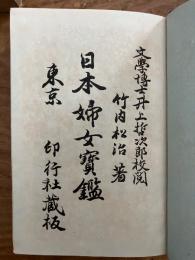 文學博士井上哲次郎校閲
竹内松治著
日本婦女寶鑑
東京 印行社藏板